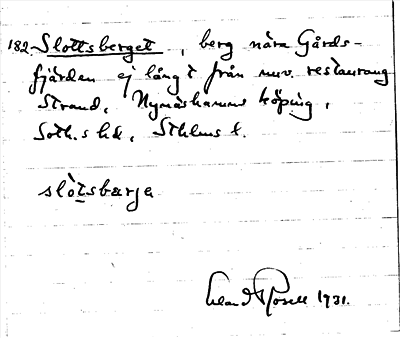 182. Slottsberget, berg nära Gårds-
fjärden ej långt från nuv. restaurang
Strand, Nynäshamns köping,
Soth.s hd, Sthlms l.
slòtsbærja
Rosell 1931.